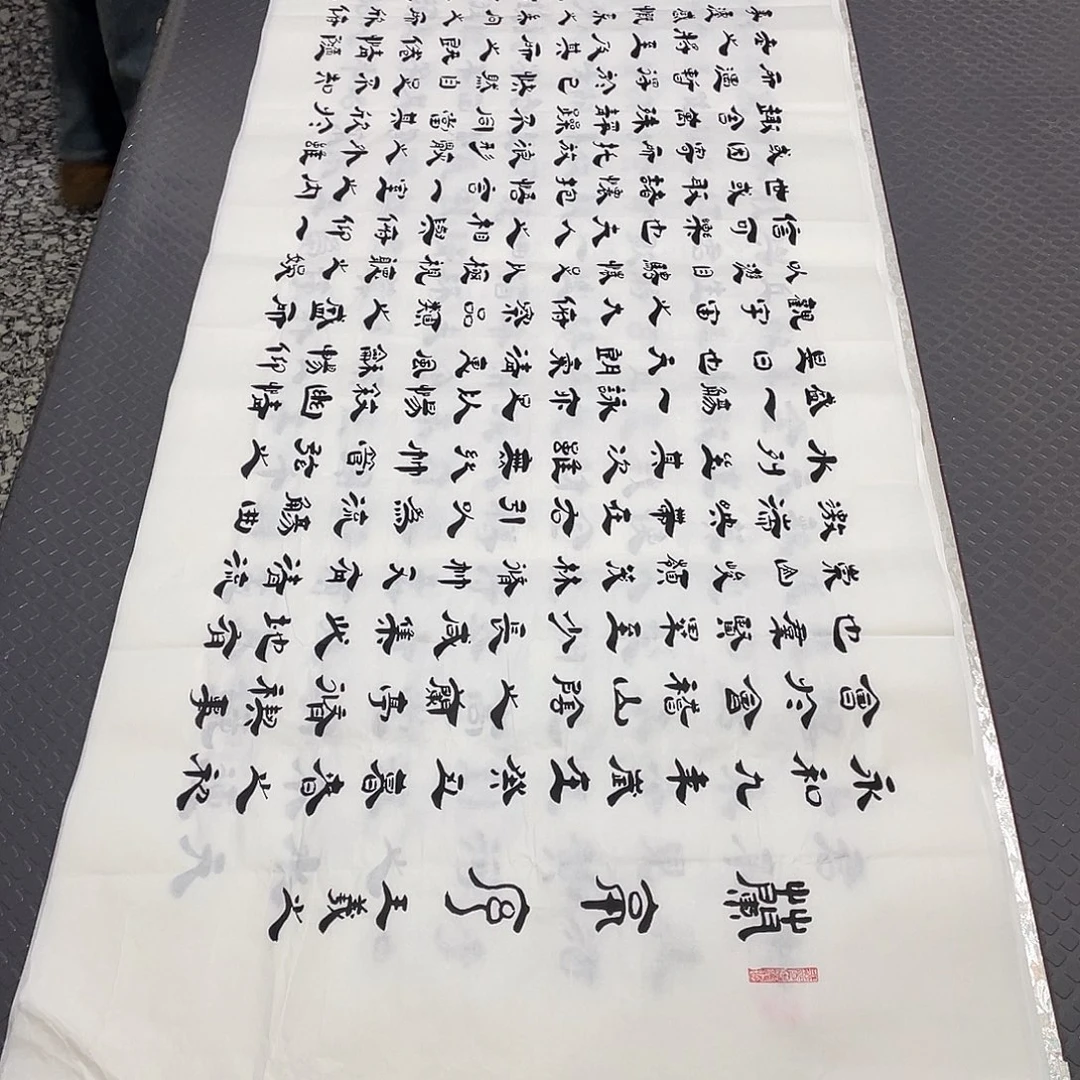 蘭亭序
王羲之
永和九年歲在癸丑暮春之初
會於會稽山陰之蘭亭脩禊事
也羣賢畢至少長咸集此地有
崇山峻領茂林脩竹又有清流
激湍映帶左右引以為流觴曲
水列坐其次雖無絲竹管弦之
盛一觴一詠亦足以暢敘幽情
是日也天朗氣清惠風龢暢仰
觀宇宙之大俯察品類之盛所
以遊目騁懷足以極視聽之娛
信可樂也夫人之相與俯仰一
世或取諸懷抱悟言一室之內
或因寄所托放浪形骸之外雖
趣舍萬殊靜躁不同當其欣於
所遇暫得於己快然自足不知
老之將至及其所之既倦情隨
事遷感慨係之矣向之所欣俛